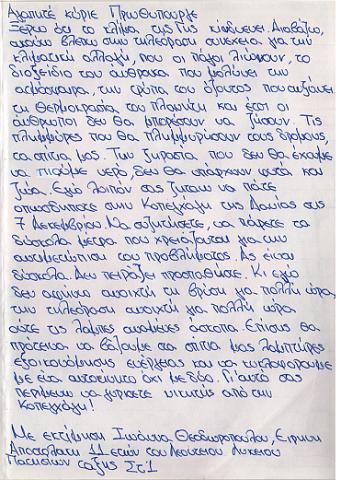 Αγαπητέ κύριε Πρωθυπουργέ
Ξέρω ότι το κλίμα της Γης κινδυνεύει. Διαβάζω,
ακούω βλέπω στην τηλεόραση συνέχεια για την
κλιματική αλλαγή, που οι πάγοι λιώνουν, το
διοξείδιο του άνθρακα που μολύνει την
ατμόσφαιρα, την τρύπα του όζοντος που αυξάνει
τη θερμοκρασία του πλανήτη και έτσι οι
άνθρωποι δεν θα μπορέσουν να ζήσουν. Τις
πλημμύρες που θα πλημμυρίσουν τους δρόμους,
τα σπίτια μας. Την ξηρασία που δεν θα έχουμε
να πιούμε νερό, δεν θα υπάρχουν φυτά και
ζώα. Εγώ λοιπόν σας ζητάω να πάτε
οπωσδήποτε στην Κοπεγχάγη της Δανίας στις
7 Δεκεμβρίου. Να συζητήσετε, να πάρετε τα
δύσκολα μέτρα που χρειάζονται για την
αντιμετώπιση του προβλήματος. Ας είναι
δύσκολα. Δεν πειράζει προσπαθήστε. Κι εγώ
δεν αφήνω ανοιχτή τη βρύση για πολλή ώρα,
την τηλεόραση ανοιχτή για πολλή ώρα
ούτε τις λάμπες αναμένες άσκοπα. Επίσης θα
πρότεινα να βάζουμε στα σπίτια μας λαμπτήρες
εξοικονόμησης ενέργειας και να κυκλοφορούμε
με ένα αυτοκίνητο όχι με δύο. Γι'αυτό σας
περιμένω να γυρίσετε νικητές από την
Κοπεγχάγη!
Με εκτίμηση Ιωάννα Θεοδωροπούλου, Ειρήνη
Αποστολάτη 11 ετών του Λεοντείου Λυκείου
Πατησίων τάξης Στ'1